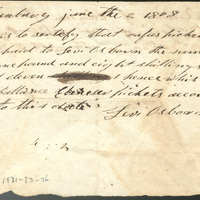 nbury june the 2 1808
is to certify that rufus picke
paid to Levi Osborn the sum
one pound and eight shilling
eleven pence which
ballance pickets acco
to this date
Levi Osborn
1831-23-36